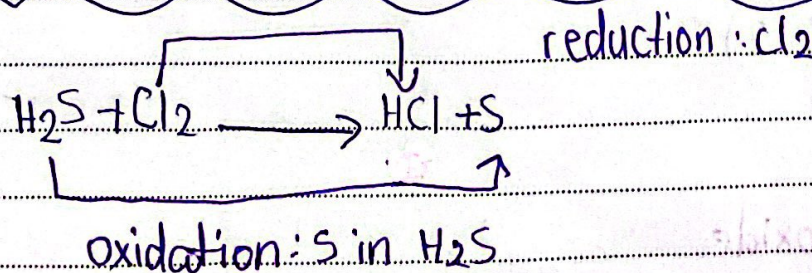 reduction : Cl2
H2S + Cl2 → HCl + S
oxidation : S in H2S